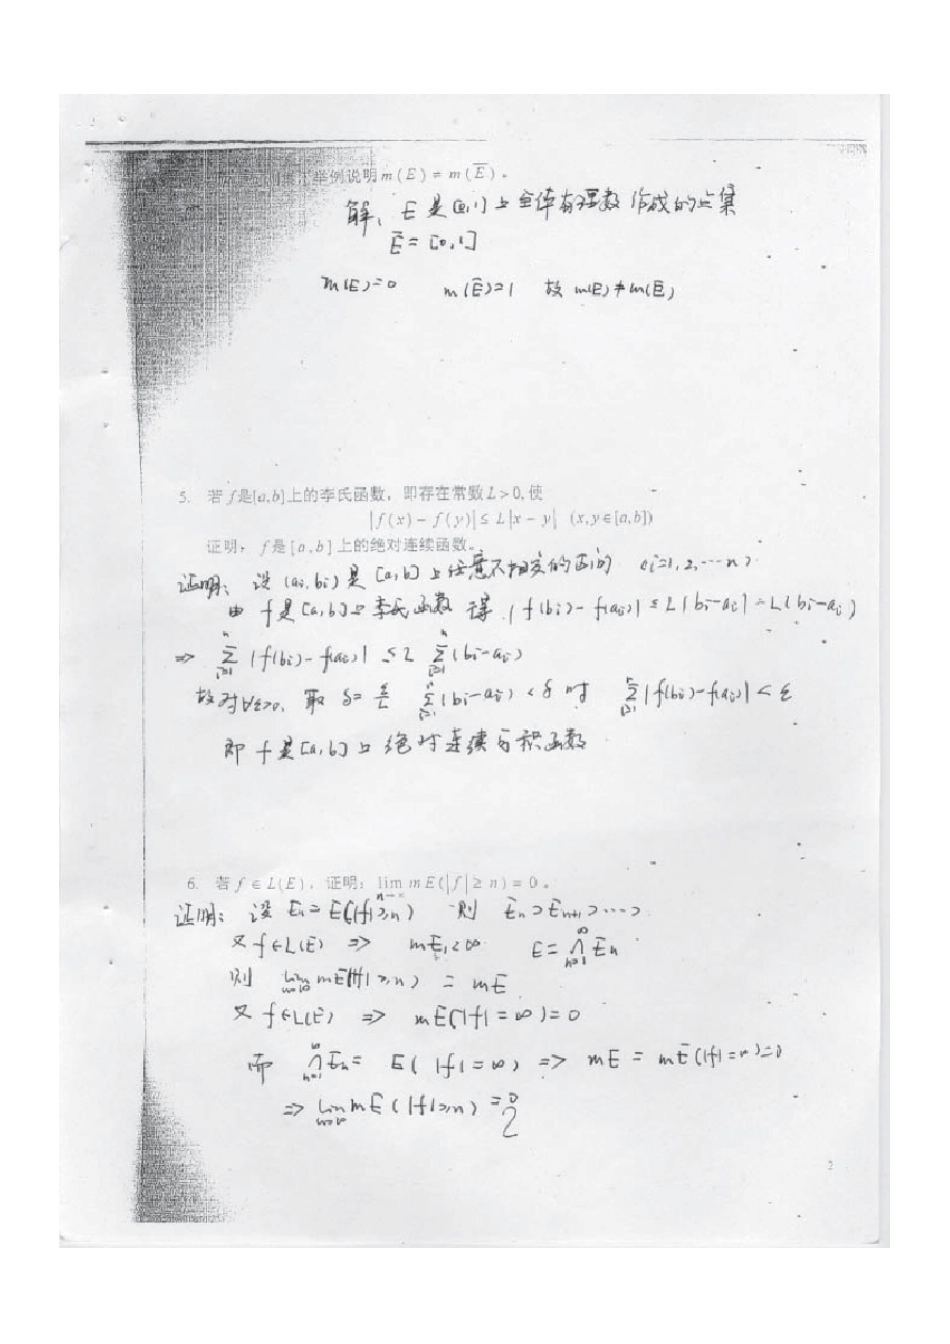 举例说明 m(E) = m(E̅)。
解、E是[0,1]上全体有理数作成的点集
E̅ = [0,1]
m(E)=0 m(E̅)=1 故 m(E)≠m(E̅)
5. 若f是[a,b]上的李氏函数，即存在常数L>0,使
|f(x)-f(y)|≤L|x-y| (x,y∈[a,b])
证明：f是[a,b]上的绝对连续函数。
证明：设(ai,bi)是[a,b]上任意不相交的区间 (i=1,2,…n)
由 f是[a,b]上李氏函数 得 |f(bi)-f(ai)|≤L|bi-ai|=L(bi-ai)
⇒ ∑_{i=1}^{n}|f(bi)-f(ai)|≤L∑_{i=1}^{n}(bi-ai)
故对∀ε>0, 取 δ=ε/L ∑_{i=1}^{n}(bi-ai)<δ时 ∑_{i=1}^{n}|f(bi)-f(ai)|<ε
即 f是[a,b]上绝对连续函数
6. 若f∈L(E)，证明：lim_{n→∞} mE(|f|≥n)=0。
证明：设En=E(|f|≥n) 则 En⊃En+1⊃…⊃
又f∈L(E) ⇒ mE1<∞ E=⋂_{n=1}^{∞}En
则 lim_{n→∞} mE(|f|≥n) = mE
又f∈L(E) ⇒ mE(|f|=∞)=0
而 ⋂_{n=1}^{∞}En = E(|f|=∞) ⇒ mE = mE(|f|=∞)=0
⇒ lim_{n→∞} mE(|f|≥n)=0
2
2